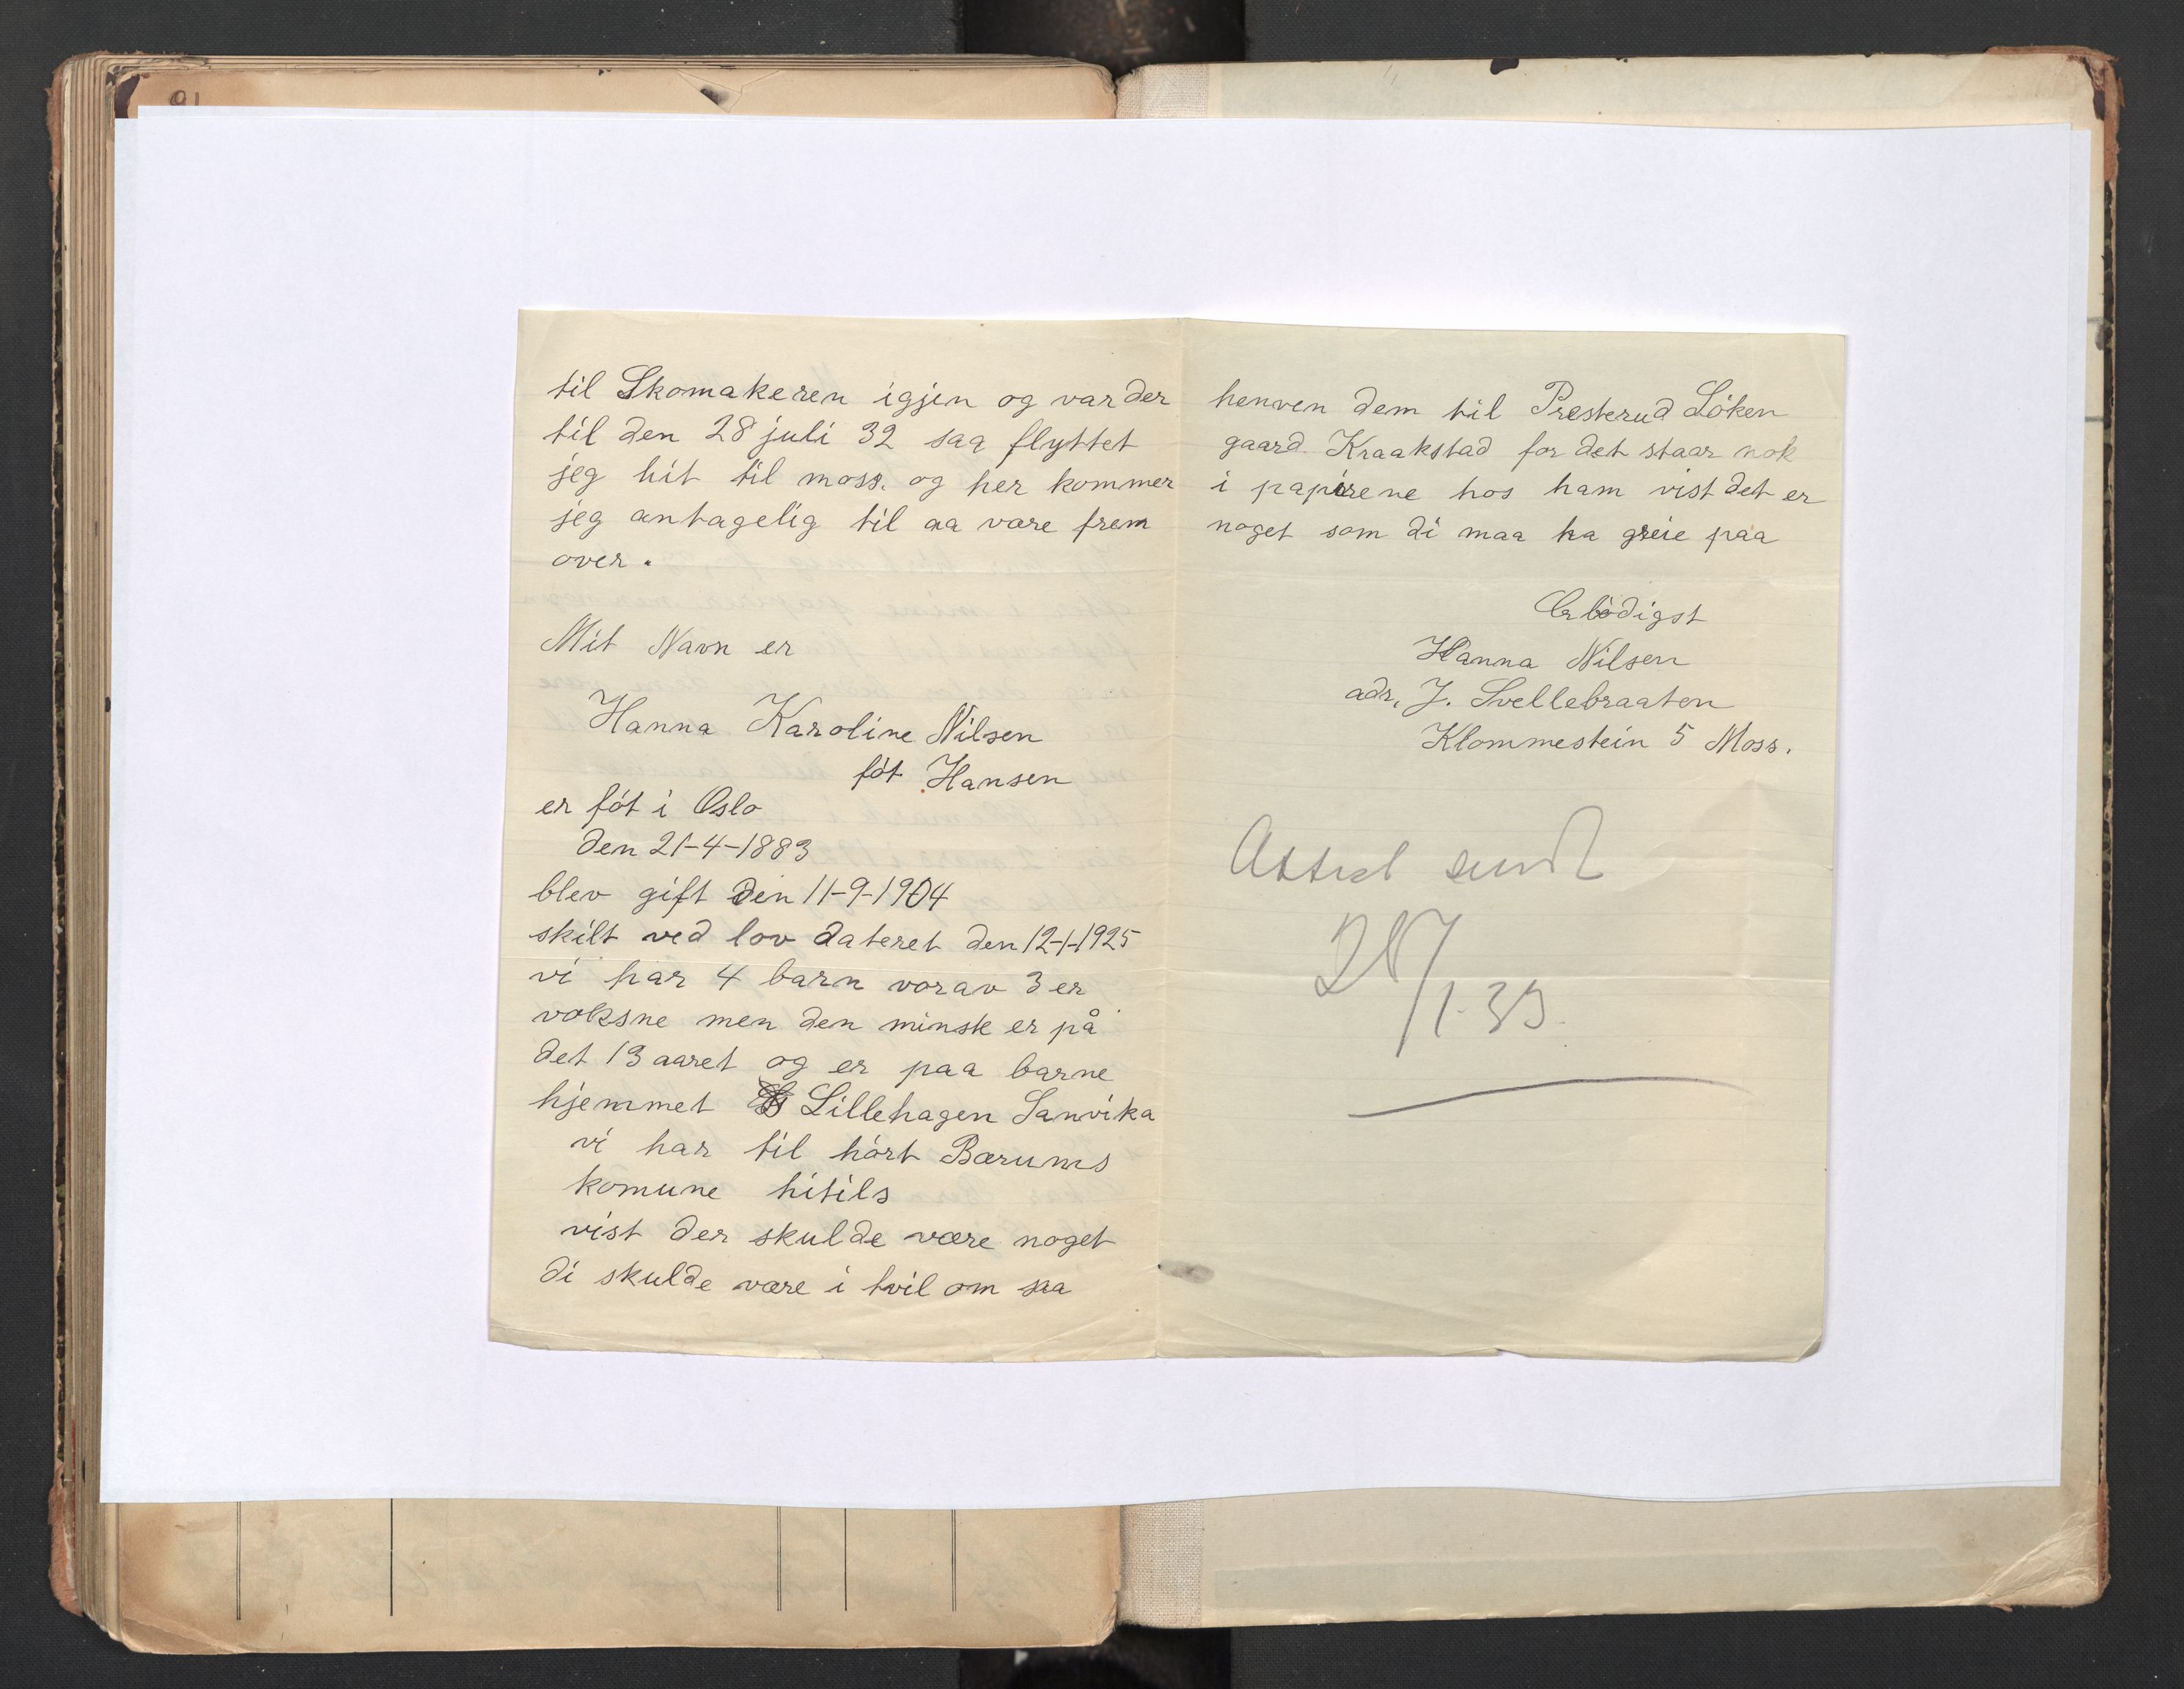 til Skomakeren igjen og var der
til den 28 juli 32 saa flyttet
jeg hit til moss. og her kommer
jeg antagelig til aa være frem
over.
Mit Navn er
Hanna Karoline Nilsen
föt Hansen
er föt i Oslo
den 21-4-1883
blev gift den 11-9-1904
skilt ved lov dateret den 12-1-1925
vi har 4 barn vorav 3 er
voksne men den minste er på
det 13 aaret og er paa barne
hjemmet Lillehagen Sanvika
vi har til hört Bærums
komune hitils
vist der skulde være noget
di skulde være i tvil om saa
henven dem til Presterud Löken
gaard. Kraakstad for det staar nok
i papirene hos ham vist det er
noget som di maa ha greie paa
Erbödigst
Hanna Nilsen
adr, J. Svellebraaten
Klommestein 5 Moss.
Attest sendt
1-35